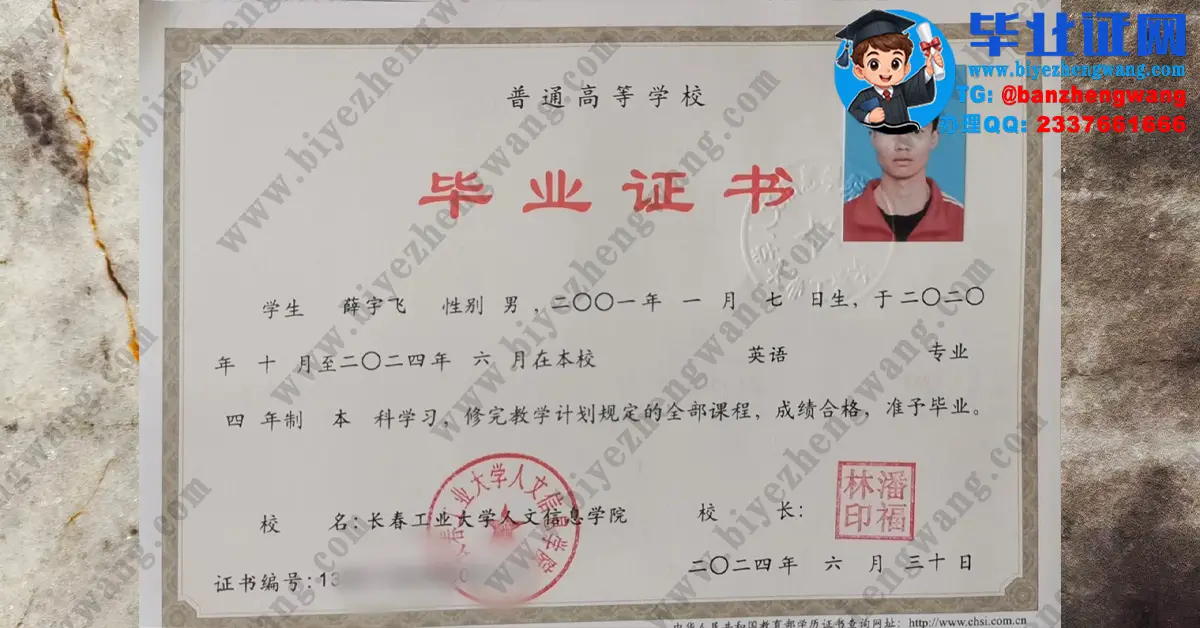 毕业证网
www.biyezhengwang.com
TG: @banzhengwang
办理QQ: 2337661666
普通高等学校
毕业证书
学生 薛宇飞 性别 男 ,二〇〇一年 一 月 七 日生, 于二〇二〇
年 十 月至二〇二四年 六 月在本校 英语 专业
四 年制 本 科学习, 修完教学计划规定的全部课程, 成绩合格, 准予毕业。
校 名: 长春工业大学人文信息学院 校 长:
林潘
印福
证书编号: 13
二〇二四年 六 月 三十日
中华人民共和国教育部学历证书查询网址: http://www.chsi.com.cn
www.biyezhengwang.com